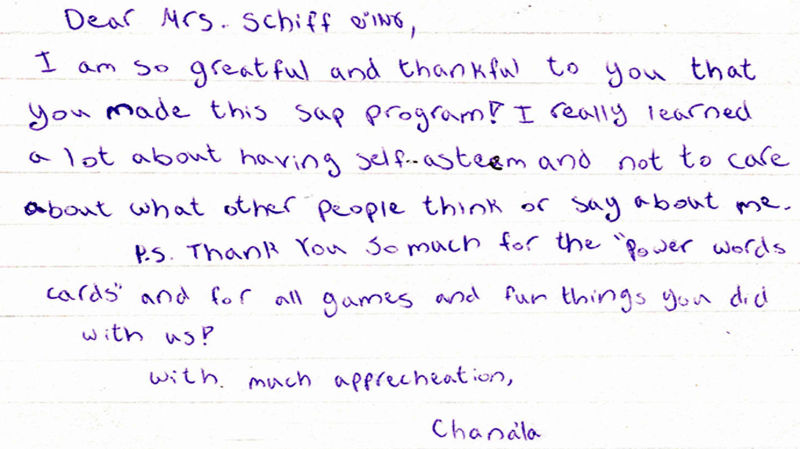 Dear Mrs. Schiff
I am so greatful and thankful to you that
you made this sap program! I really learned
a lot about having self-asteem and not to care
about what other people think or say about me.
P.S. Thank You So much for the "power words
cards" and for all games and fun things you did
with us!
with much apprecheation,
Chana'la